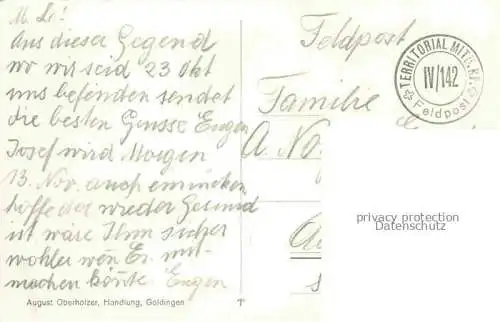 M. L!
Aus dieser Gegend
wo wir seid 23 Okt
uns befinden sendet
die besten Grüsse Eugen
Josef wird Morgen
13. Nov. auch einrücken
hoffe der wieder Gesund
ist wäre Ihm sicher
wohler wen Er mit-
machen könte. Eugen
August Oberholzer, Handlung, Goldingen
Feldpost
TERRITORIAL MITR. KP.
IV/142
Feldpost
Familie
A. No
privacy protection
Datenschutz